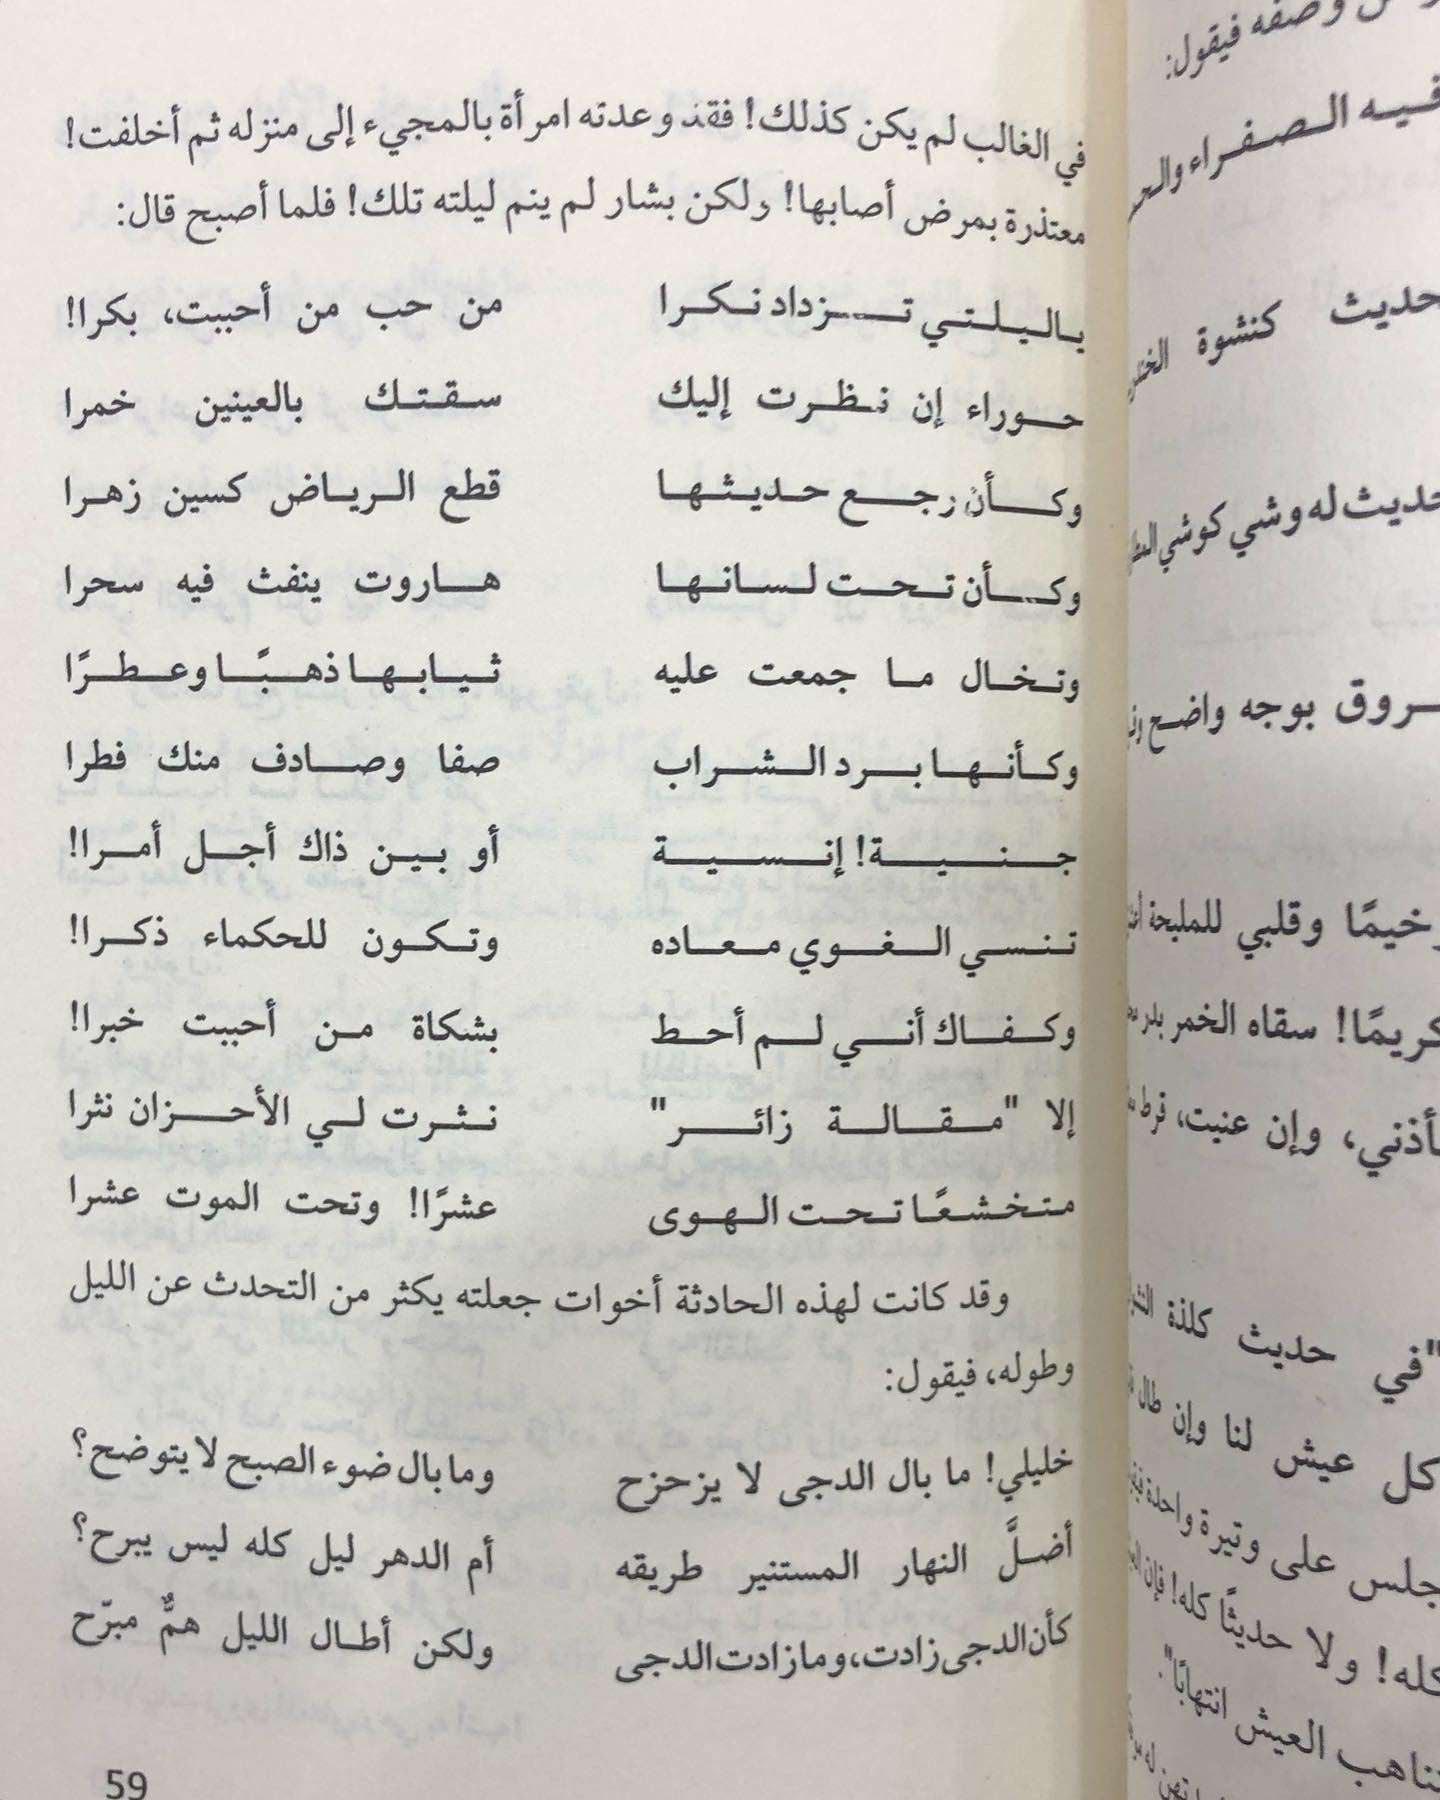 في الغالب لم يكن كذلك! فقد وعدته امرأة بالمجيء إلى منزله ثم أخلفت!
معتذرة بمرض أصابها! ولكن بشار لم ينم ليلته تلك! فلما أصبح قال:
ياليلتي تزداد نكرا من حب من أحببت، بكرا!
حوراء إن نظرت إليك سقتك بالعينين خمرا
وكأن رجع حديثها قطع الرياض كسين زهرا
وكأن تحت لسانها هاروت ينفث فيه سحرا
وتخال ما جمعت عليه ثيابها ذهبًا وعطرًا
وكأنها برد الشراب صفا وصادف منك فطرا
جنية! إنسية أو بين ذاك أجل أمرا!
تنسي الغوي معاده وتكون للحكماء ذكرا!
وكفاك أني لم أحط بشكاة من أحببت خبرا!
إلا "مقالة زائر" نثرت لي الأحزان نثرا
متخشعًا تحت الهوى عشرًا! وتحت الموت عشرا
وقد كانت لهذه الحادثة أخوات جعلته يكثر من التحدث عن الليل
وطوله، فيقول:
خليلي! ما بال الدجى لا يزحزح وما بال ضوء الصبح لا يتوضح؟
أضلَّ النهار المستنير طريقه أم الدهر ليل كله ليس يبرح؟
كأن الدجى زادت، وما زادت الدجى ولكن أطال الليل همٌّ مبرّح
59
وصفه فيقول:
فيه الصفراء
حديث كنشوة
حديث له وشي كوشي
بوجه واضح
وقلبي للمليحة
كريمًا! سقاه الخمر بدر
وإن عنيت، قرط
"في حديث كلذة
كل عيش لنا وإن طال
على وتيرة واحدة
كله! ولا حديثًا كله! فإن
العيش انتهابًا".